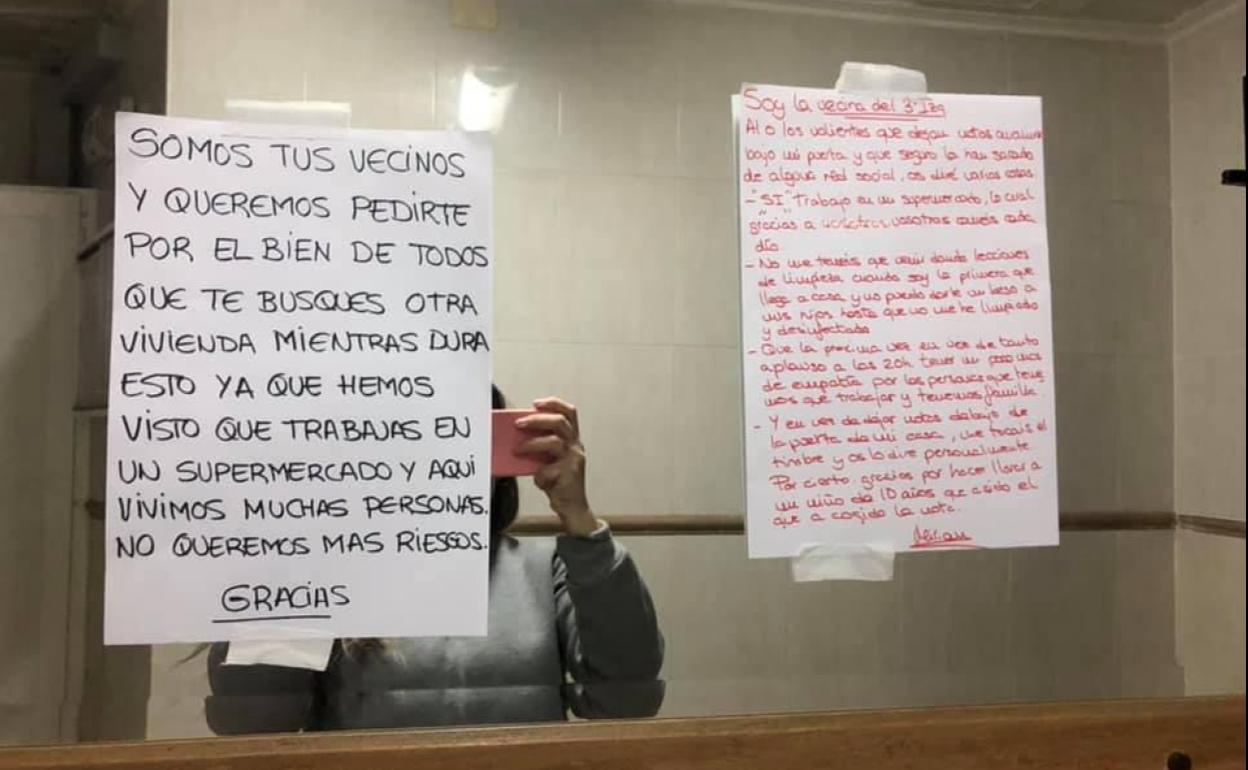 SOMOS TUS VECINOS
Y QUEREMOS PEDIRTE
POR EL BIEN DE TODOS
QUE TE BUSQUES OTRA
VIVIENDA MIENTRAS DURA
ESTO YA QUE HEMOS
VISTO QUE TRABAJAS EN
UN SUPERMERCADO Y AQUI
VIVIMOS MUCHAS PERSONAS.
NO QUEREMOS MAS RIESGOS.
GRACIAS
Soy la vecina del 3º Izq
Al o los valientes que dejan notas
bajo mi puerta y que seguro la han sacado
de alguna red social, os diré varias cosas
- "SI" Trabajo en un supermercado, lo cual
gracias a vosotros coméis cada
día
- No me tenéis que venir dando lecciones
de limpieza cuando soy la primera que
llega a casa y no puedo darle un beso a
mis hijos hasta que no me he limpiado
y desinfectado
- Que la proxima vez en vez de tanto
aplauso a las 20h tener un poco mas
de empatía por las personas que tene
mos que trabajar y tenemos familia.
- Y en vez de dejar notas debajo de
la puerta de mi casa, me tocais el
timbre y os lo dire personalmente.
Por cierto, gracias por hacer llorar a
un niño de 10 años que a sido el
que a cogido la nota.
Miriam